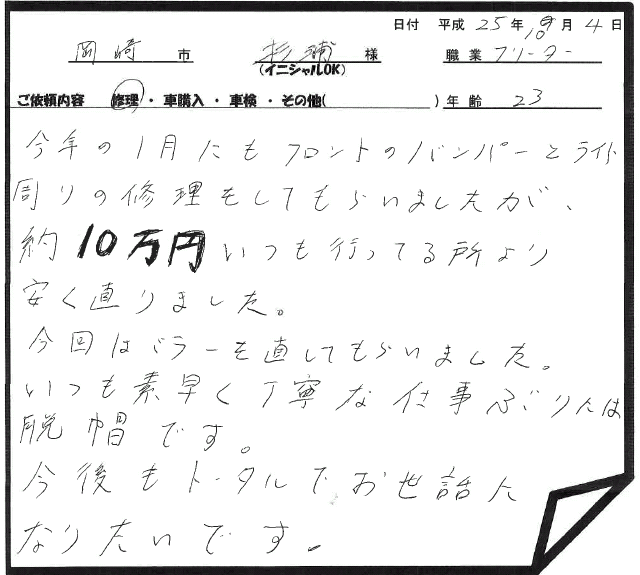 日付 平成 25年 10月 4日
岡崎 市 杉浦 様 職業 フリーター
(イニシャルOK)
ご依頼内容 修理・車購入・車検・その他( )年齢 23
今年の1月にもフロントのバンパーとライト
周りの修理をしてもらいましたが、
約10万円いつも行ってる所より
安く直りました。
今回はミラーを直してもらいました。
いつも素早く丁寧な仕事ぶりには
脱帽です。
今後もトータルでお世話に
なりたいです。